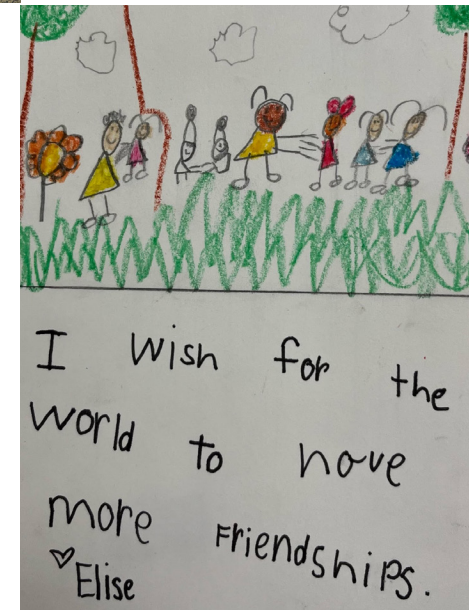 I wish for the
world to have
more Friendships.
♡ Elise